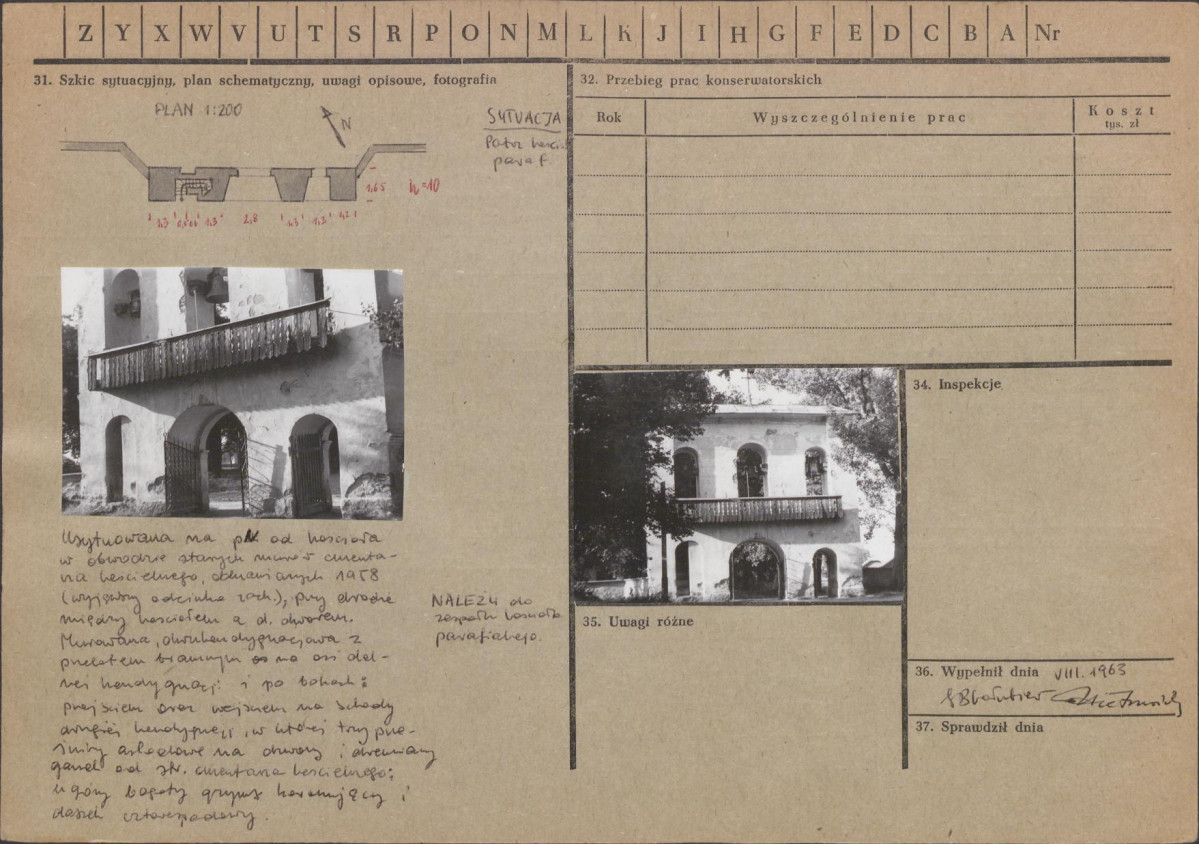 Z Y X W V U T S R P O N M L K J I H G F E D C B A Nr
31. Szkic sytuacyjny, plan schematyczny, uwagi opisowe, fotografia
PLAN 1:200
N
SYTUACJA
Patrz kości.
paraf.
1,65 h=10
1,3 1,3 2,8 1,3 1,3 1,2
Usytuowana na pN od kościoła
w obwodzie starych murów cmenta-
rza kościelnego, 1958
(wyjąwszy odcinka zach.), przy drodze
między kościołem a d. dworem.
Murowana, dwukondygnacjowa z
przelotem bramnym na osi dol-
nej kondygnacji i po bokach:
przejściem oraz wejściem na schody
drugiej kondygnacji, w której trzy prze-
źrocza arkadowe na dzwony i drewniany
ganek od str. cmentarza kościelnego;
u góry bogaty gzyms koronujący i
daszek czterospadowy.
NALEŻY do
zespołu kościoła
parafialnego.
32. Przebieg prac konserwatorskich
Rok Wyszczególnienie prac Koszt
tys. zł
34. Inspekcje
35. Uwagi różne
36. Wypełnił dnia VIII. 1963
37. Sprawdził dnia